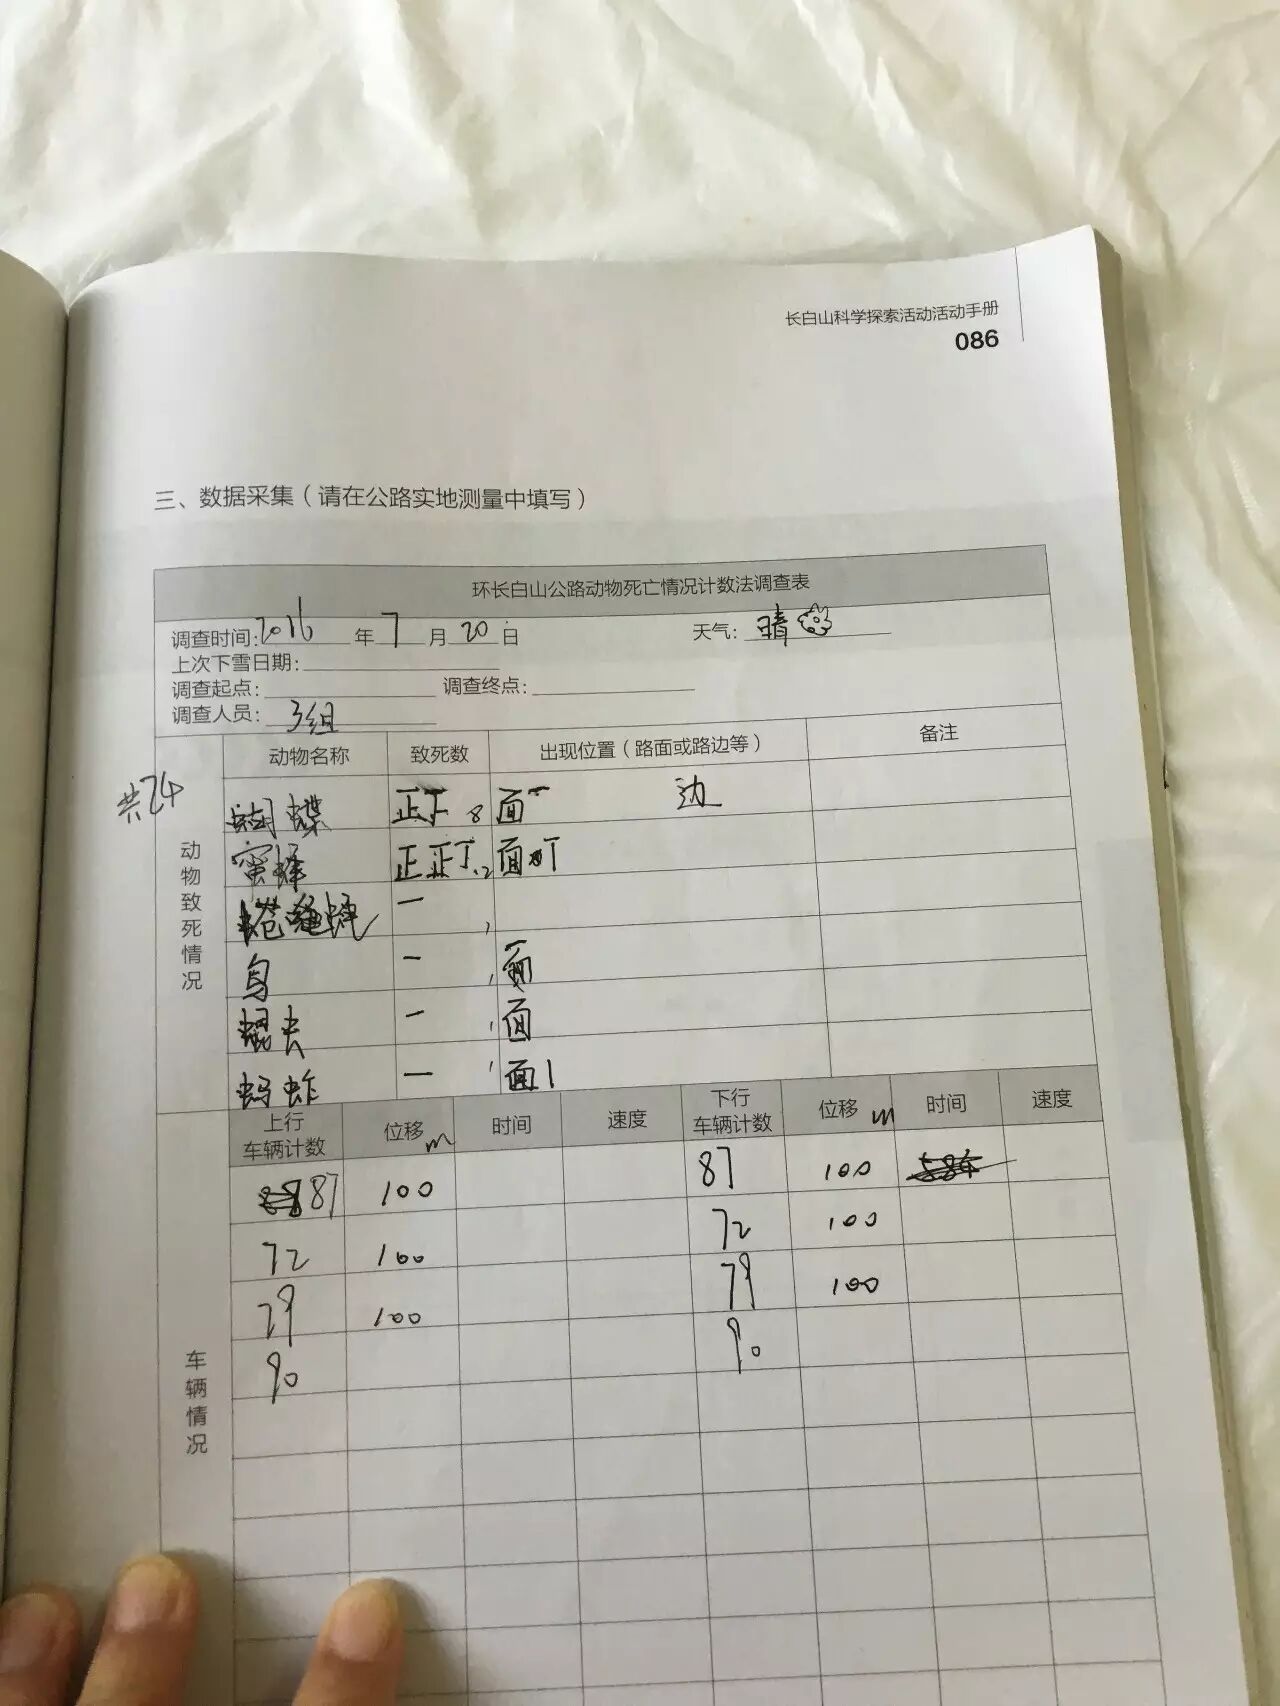 长白山科学探索活动活动手册
086
三、数据采集（请在公路实地测量中填写）
环长白山公路动物死亡情况计数法调查表
调查时间:2016年7月20日 天气:晴
上次下雪日期:
调查起点: 调查终点:
调查人员:3组
动物致死情况
动物名称 致死数 出现位置（路面或路边等） 备注
共24
蝴蝶 正下 8 面 边
蜜蜂 正正丅 12 面
一 1
鸟 一 1 面
一 1 面
蚂蚱 一 1 面1
车辆情况
上行车辆计数 位移m 时间 速度 下行车辆计数 位移m 时间 速度
87 100 87 100
72 100 72 100
79 100 79 100
90 90